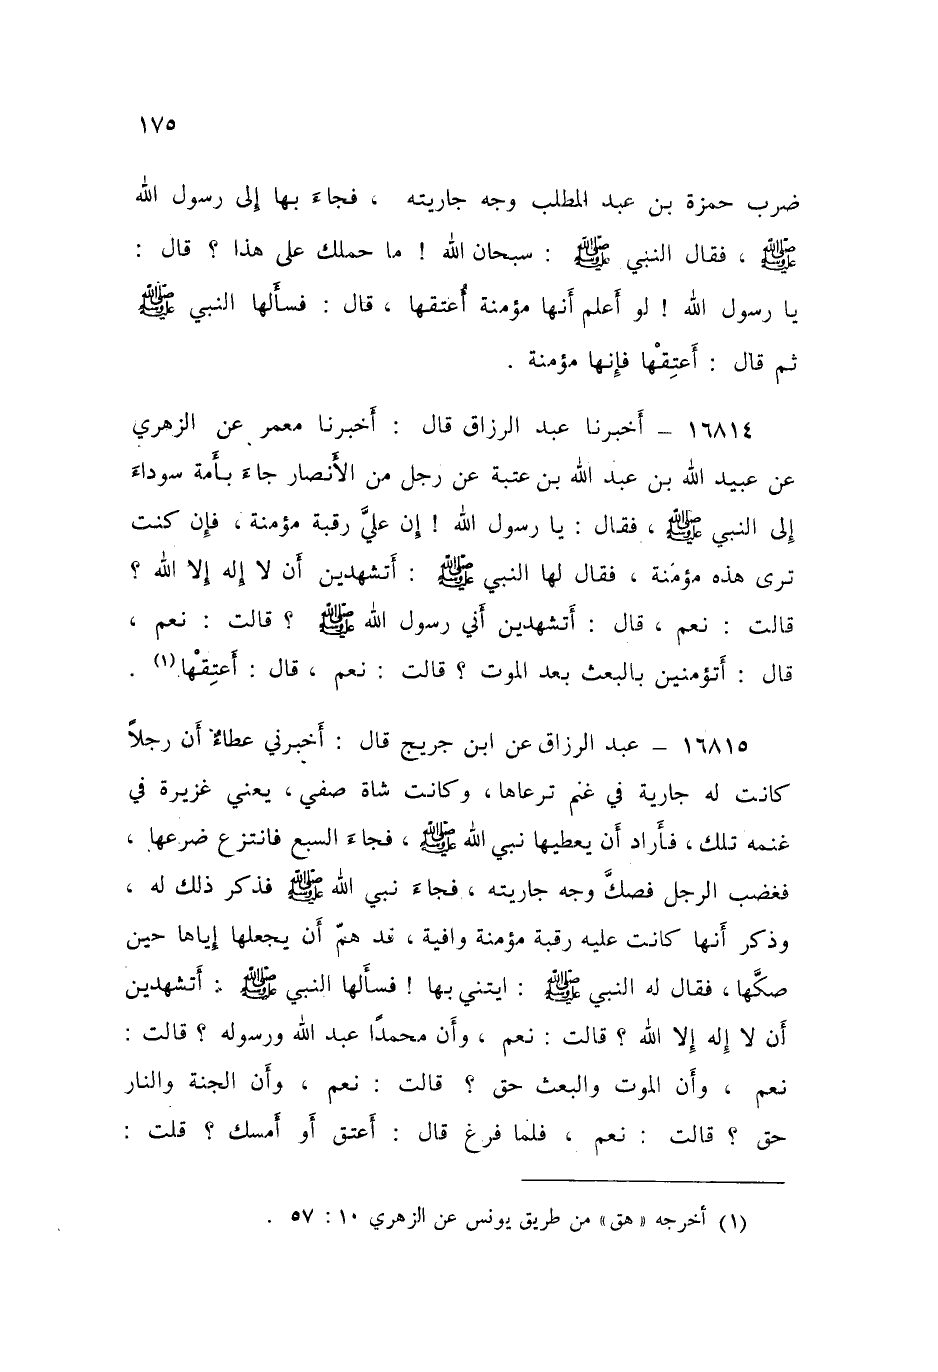 ١٧٥
ضرب حمزة بن عبد المطلب وجه جاريته ، فجاءَ بها إلى رسول الله
ﷺ ، فقال النبي ﷺ : سبحان الله ! ما حملك على هذا ؟ قال :
يا رسول الله ! لو أَعلم أَنها مؤمنة أُعتقها ، قال : فسأَلها النبي ﷺ
ثم قال : أَعتِقْها فإِنها مؤمنة .
١٦٨١٤ – أَخبرنا عبد الرزاق قال : أَخبرنا معمر عن الزهري
عن عبيد الله بن عبد الله بن عتبة عن رجل من الأَنصار جاءَ بأَمة سوداءَ
إِلى النبي ﷺ ، فقال : يا رسول الله ! إِن عليَّ رقبة مؤمنة ، فإِن كنت
ترى هذه مؤمنة ، فقال لها النبي ﷺ : أَتشهدين أَن لا إِله إِلا الله ؟
قالت : نعم ، قال : أَتشهدين أَني رسول الله ﷺ ؟ قالت : نعم ،
قال : أَتؤمنين بالبعث بعد الموت ؟ قالت : نعم ، قال : أَعتِقْها(١) .
١٦٨١٥ – عبد الرزاق عن ابن جريج قال : أَخبرني عطاءٌ أَن رجلاً
كانت له جارية في غنم ترعاها ، وكانت شاة صفي ، يعني غزيرة في
غنمه تلك ، فأَراد أَن يعطيها نبي الله ﷺ ، فجاءَ السبع فانتزع ضرعها ،
فغضب الرجل فصكَّ وجه جاريته ، فجاءَ نبي الله ﷺ فذكر ذلك له ،
وذكر أَنها كانت عليه رقبة مؤمنة وافية ، قد همّ أَن يجعلها إِياها حين
صكَّها ، فقال له النبي ﷺ : ايتني بها ! فسأَلها النبي ﷺ : أَتشهدين
أَن لا إِله إِلا الله ؟ قالت : نعم ، وأَن محمدًا عبد الله ورسوله ؟ قالت :
نعم ، وأَن الموت والبعث حق ؟ قالت : نعم ، وأَن الجنة والنار
حق ؟ قالت : نعم ، فلما فرغ قال : أَعتق أَو أَمسك ؟ قلت :
(١) أخرجه «هق» من طريق يونس عن الزهري ١٠ : ٥٧ .